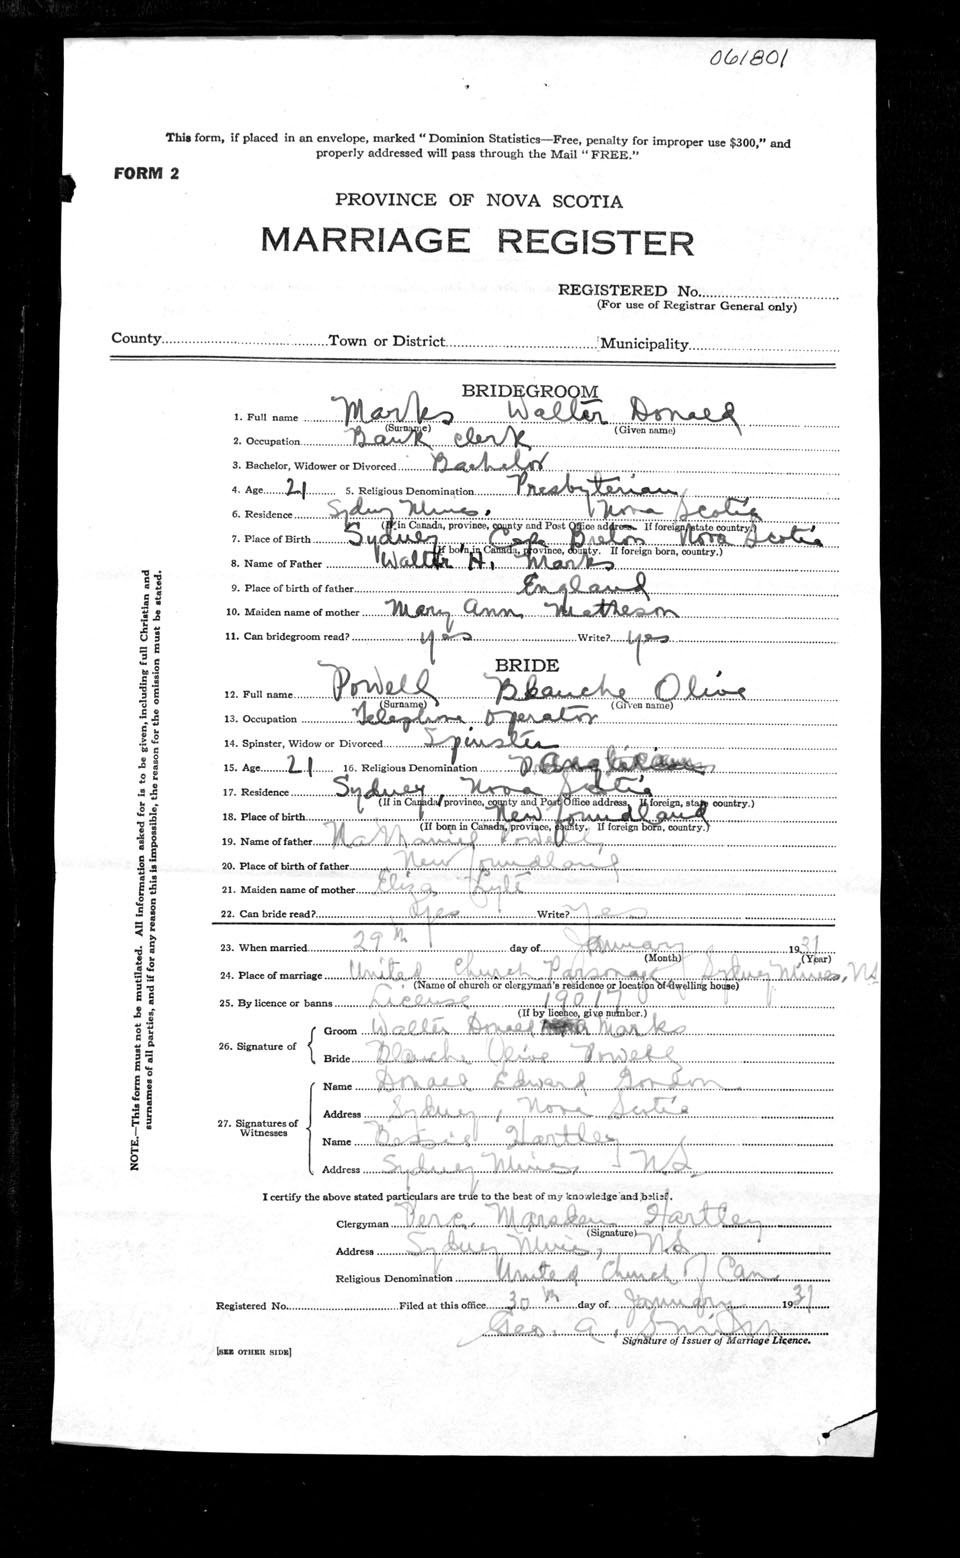 061801
This form, if placed in an envelope, marked "Dominion Statistics—Free, penalty for improper use $300," and
properly addressed will pass through the Mail "FREE."
FORM 2
PROVINCE OF NOVA SCOTIA
MARRIAGE REGISTER
REGISTERED No.
(For use of Registrar General only)
County Town or District Municipality
BRIDEGROOM
1. Full name Marks Walter Donald
(Surname) (Given name)
2. Occupation Bank Clerk
3. Bachelor, Widower or Divorced Bachelor
4. Age 21 5. Religious Denomination Presbyterian
6. Residence Sydney Mines, Nova Scotia
(If in Canada, province, county and Post Office address. If foreign, state country.)
7. Place of Birth Sydney Cape Breton Nova Scotia
(If born in Canada, province, county. If foreign born, country.)
8. Name of Father Walter H. Marks
9. Place of birth of father England
10. Maiden name of mother Mary Ann Matheson
11. Can bridegroom read? yes Write? yes
BRIDE
12. Full name Powell Blanche Olive
(Surname) (Given name)
13. Occupation Telephone Operator
14. Spinster, Widow or Divorced Spinster
15. Age 21 16. Religious Denomination Anglican
17. Residence Sydney, Nova Scotia
(If in Canada, province, county and Post Office address. If foreign, state country.)
18. Place of birth Newfoundland
(If born in Canada, province, county. If foreign born, country.)
19. Name of father Nathaniel Powell
20. Place of birth of father Newfoundland
21. Maiden name of mother Eliza
22. Can bride read? Yes Write? Yes
23. When married 29th day of January 1931
(Month) (Year)
24. Place of marriage United Church Parsonage Sydney Mines, NS
(Name of church or clergyman's residence or location of dwelling house)
25. By licence or banns License 19017
(If by licence, give number.)
26. Signature of Groom Walter Donald Marks
Bride Blanche Olive Powell
27. Signatures of Witnesses Name Donald Edward Gordon
Address Sydney, Nova Scotia
Name Bessie Hartley
Address Sydney Mines NS
I certify the above stated particulars are true to the best of my knowledge and belief.
Clergyman Hartley
(Signature)
Address Sydney Mines, NS
Religious Denomination United Church of Can.
Registered No. Filed at this office 30th day of January 1931
Geo. A.
Signature of Issuer of Marriage Licence.
[SEE OTHER SIDE]
NOTE.—This form must not be mutilated. All information asked for is to be given, including full Christian and
surnames of all parties, and if for any reason this is impossible, the reason for the omission must be stated.